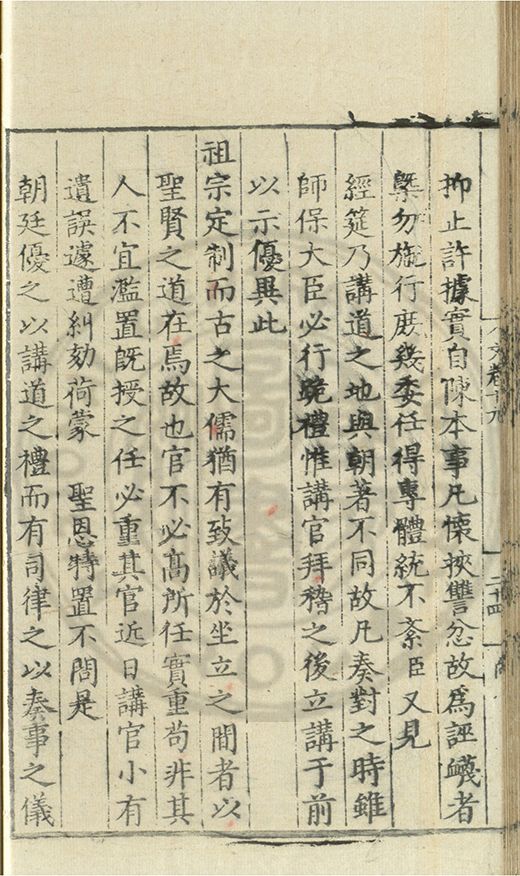 抑止許據實自陳本事凡懷挾讐忿故爲誣衊者
槩勿施行庶幾委任得專體統不紊臣又見
經筵乃講道之地與朝著不同故凡奏對之時雖
師保大臣必行跪禮惟講官拜稽之後立講于前
以示優異此
祖宗定制而古之大儒猶有致議於坐立之間者以
聖賢之道在焉故也官不必高所任實重苟非其
人不宜濫置旣授之任必重其官近日講官小有
遺誤遽遭糾劾荷蒙 聖恩特置不問是
朝廷優之以講道之禮而有司律之以奏事之儀
文卷十九
二十四